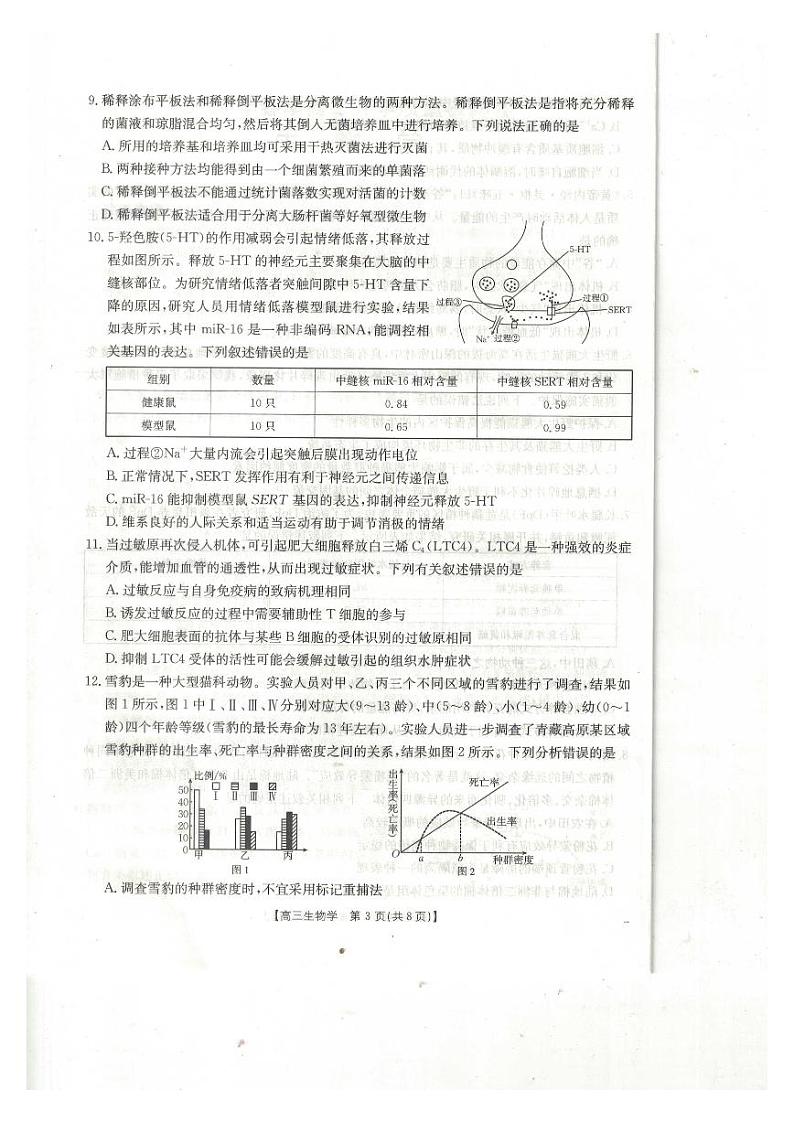 9. 稀释涂布平板法和稀释倒平板法是分离微生物的两种方法。稀释倒平板法是指将充分稀释
的菌液和琼脂混合均匀,然后将其倒人无菌培养皿中进行培养。下列说法正确的是
A. 所用的培养基和培养皿均可采用于热灭菌法进行灭菌
B. 两种接种方法均能得到由一个细菌繁殖而来的单菌落
C. 稀释倒平板法不能通过统计菌落数实现对活菌的计数
D. 稀释倒平板法适合用于分离大肠杆菌等好氧型微生物
10. 5-羟色胺(5-HT)的作用减弱会引起情绪低落,其释放过
程如图所示。释放 5-HT 的神经元主要聚集在大脑的中
缝核部位。为研究情绪低落者突触间隙中 5-HT 含量下
降的原因,研究人员用情绪低落模型鼠进行实验,结果
如表所示,其中 miR-16 是一种非编码 RNA,能调控相
关基因的表达。下列叙述错误的是
5-HT
过程③
过程①
SERT
Na⁺ 过程②
组别 数量 中缝核 miR-16 相对含量 中缝核 SERT 相对含量
健康鼠 10 只 0.84 0.59
模型鼠 10 只 0.65 0.99
A. 过程②Na⁺大量内流会引起突触后膜出现动作电位
B. 正常情况下,SERT 发挥作用有利于神经元之间传递信息
C. miR-16 能抑制模型鼠 SERT 基因的表达,抑制神经元释放 5-HT
D. 维系良好的人际关系和适当运动有助于调节消极的情绪
11. 当过敏原再次侵人机体,可引起肥大细胞释放白三烯 C₄(LTC4)。LTC4 是一种强效的炎症
介质,能增加血管的通透性,从而出现过敏症状。下列有关叙述错误的是
A. 过敏反应与自身免疫病的致病机理相同
B. 诱发过敏反应的过程中需要辅助性 T 细胞的参与
C. 肥大细胞表面的抗体与某些 B 细胞的受体识别的过敏原相同
D. 抑制 LTC4 受体的活性可能会缓解过敏引起的组织水肿症状
12. 雪豹是一种大型猫科动物。实验人员对甲、乙、丙三个不同区域的雪豹进行了调查,结果如
图 1 所示,图 1 中Ⅰ、Ⅱ、Ⅲ、Ⅳ分别对应大(9～13 龄)、中(5～8 龄)、小(1～4 龄)、幼(0～1
龄)四个年龄等级(雪豹的最长寿命为 13 年左右)。实验人员进一步调查了青藏高原某区域
雪豹种群的出生率、死亡率与种群密度之间的关系,结果如图 2 所示。下列分析错误的是
比例/%
Ⅰ Ⅱ Ⅲ Ⅳ
50
40
30
20
10
0
甲 乙 丙
图 1
出生率(死亡率)
死亡率
出生率
O a b 种群密度
图 2
A. 调查雪豹的种群密度时,不宜采用标记重捕法
【高三生物学 第 3 页(共 8 页)】